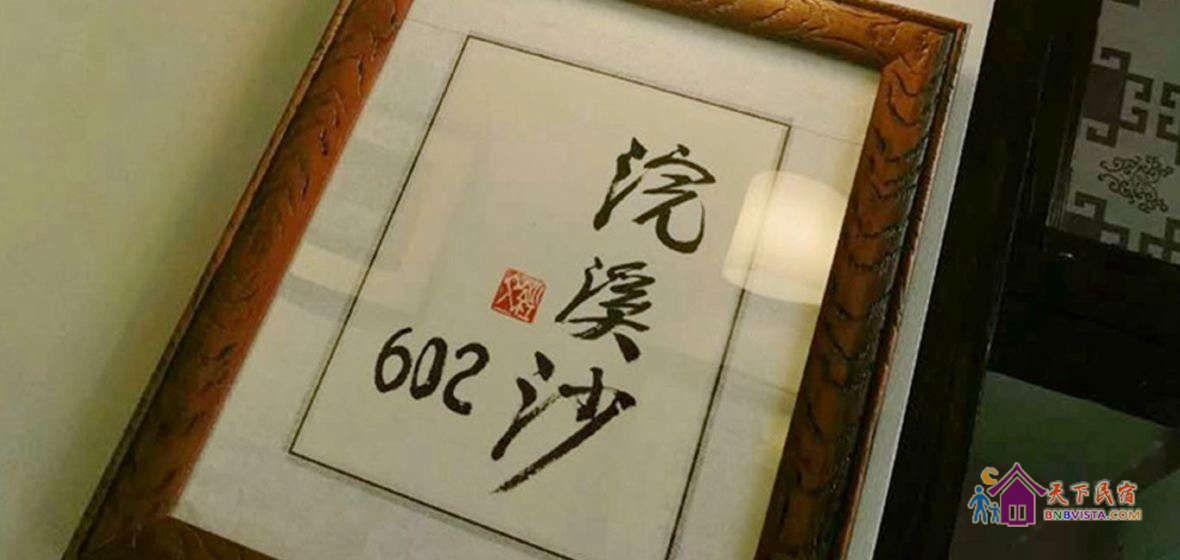 浣溪沙
602
天下民宿
BNBVISTA.COM